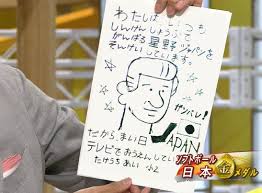 わたしは いつも
しんけんしょうぶで
がんばる 星野ジャパンを
そんけいしています。
ガンバレ!
JAPAN
だから、まい日
テレビでおうえんしてい
たけうち あい 小2
ソフトボール
日本金メダル